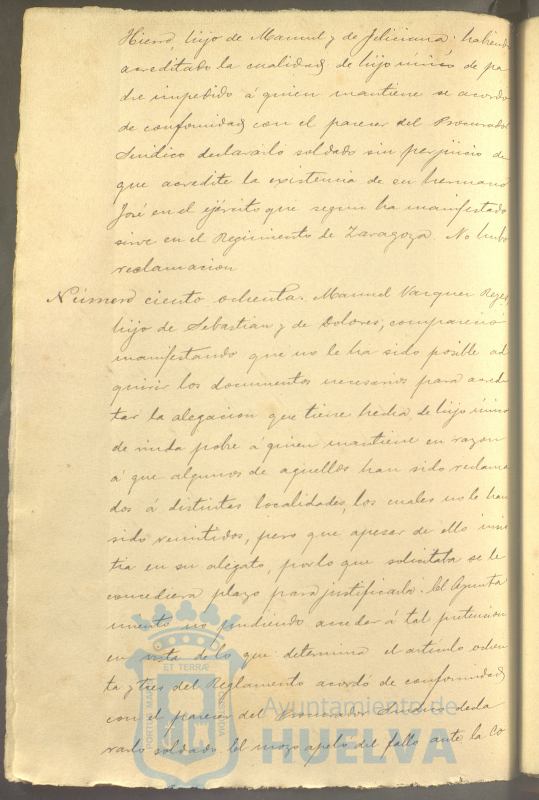 Hierro, hijo de Manuel y de Feliciana; habiendo
acreditado la cualidad de hijo único de pa
dre impedido á quien mantiene se acordo
de conformidad con el parecer del Procurador
Sindico declararlo soldado sin perjuicio de
que acredite la existencia de su hermano
José en el ejército que segun ha manifestado
sirve en el Regimiento de Zaragoza. No hubo
reclamacion
Número ciento ochenta. Manuel Vazquez Reyes,
hijo de Sebastian y de Dolores, compareció
manifestando que no le ha sido posible ad
quirir los documentos necesarios para acredi
tar la alegacion que tiene hecha de hijo único
de viuda pobre á quien mantiene en razon
á que algunos de aquellos han sido reclama
dos á distintas localidades, los cuales no le han
sido remitidos, pero que apesar de ello insis
tia en su alegato, por lo que solicitaba se le
concediera plazo para justificarlo. El Ayunta
miento no pudiendo acceder á tal pretension
en vista de lo que determina el artículo ochen
ta y tres del Reglamento acordó de conformidad
con el parecer del Procurador Sindico decla
rarlo soldado. El mozo apeló del fallo ante la Co
ET TERRÆ
Ayuntamiento de
HUELVA